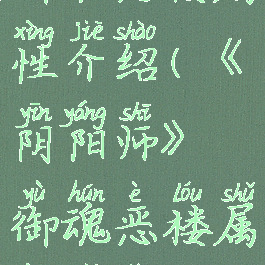 xìng jiè shào
性介绍(《
yīn yáng shī
阴阳师》
yù hún è lóu shǔ
御魂恶楼属